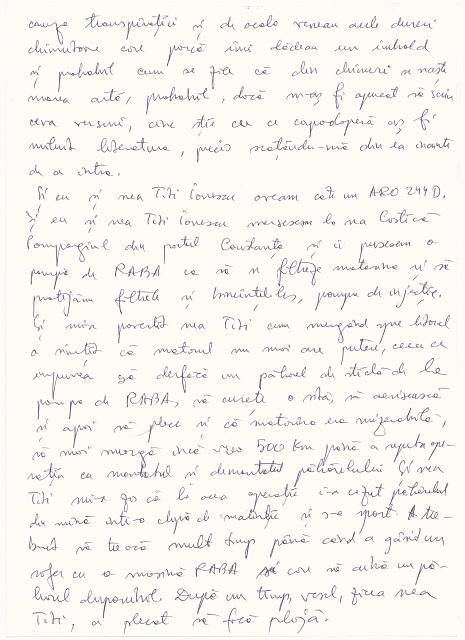 cauza transpirației și de acolo veneau acele dureri
chinuitoare care parcă îmi dădeau un imbold
și probabil cum se zice că din chinuri se naște
marea artă, probabil, dacă m-aș fi apucat să scriu
ceva versuri, cine știe cu ce capodoperă aș fi
literatura, precis scoțându-mă din ea înainte
de a intra.
Și eu și nea Titi Ionescu aveam câte un ARO 244D.
Și eu și nea Titi Ionescu mersesem la nea Costică
Pompagiul din portul Constanța și îi pusesem o
pompă de RABA ca să ne filtreze motorina și să
protejăm filtrele și bineînțeles, pompa de injecție.
Și mi-a povestit nea Titi cum mergând spre litoral
a simțit că motorul nu mai are putere, ceea ce
impunea să desfacă un păhărel de sticlă de la
pompa de RABA, să curețe o sită, să aerisească
și apoi să plece și că motorina era mizerabilă,
să mai meargă încă vreo 500 Km până a repeta ope-
rația cu montatul și demontatul păhărelului. Și nea
Titi mi-a zis că la acea operație i-a căzut păhărelul
din mână într-o clipă de și s-a spart. A tre-
buit să treacă mult timp până când a găsit un
șofer cu o mașină RABA care să aibă un pă-
hărel disponibil. După un timp, vesel, firea nea
Titi, a plecat să facă plajă.